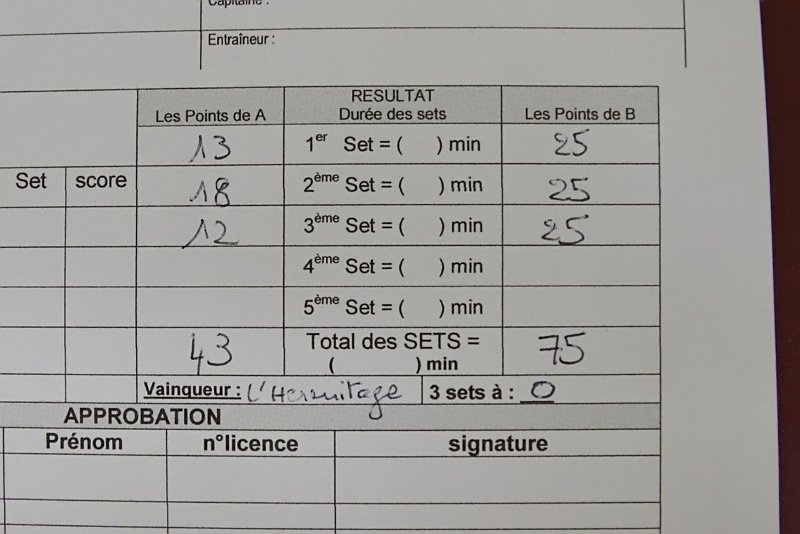 Capitaine :
Entraîneur :
Les Points de A RESULTAT Durée des sets Les Points de B
13 1er Set = ( ) min 25
Set score 18 2ème Set = ( ) min 25
12 3ème Set = ( ) min 25
4ème Set = ( ) min
5ème Set = ( ) min
43 Total des SETS = ( ) min 75
Vainqueur : L'Hermitage 3 sets à : 0
APPROBATION
Prénom n°licence signature